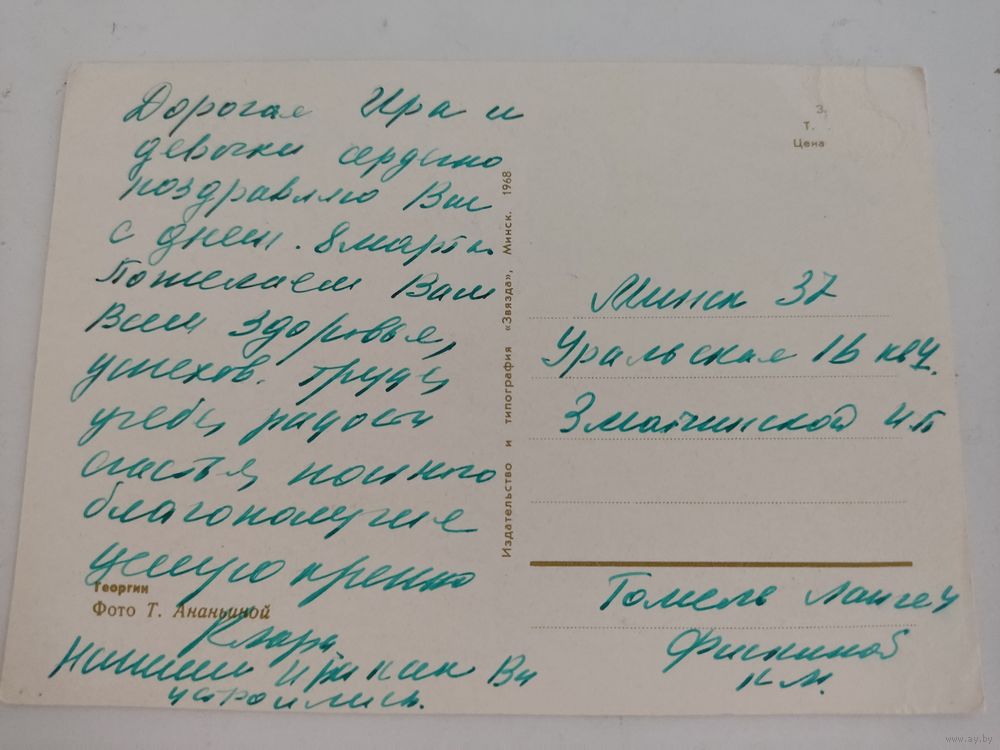 Дорогая Ира и
девочки сердечно
поздравляю Вас
с днем. 8 марта.
Пожелаем Вам
Всем здоровья,
успехов. труде,
учебе, радости
счастья, полного
благополучие
целую крепко
Клара
Напиши Ира как Вы
устроились.
Георгин
Фото Т. Ананьиной
Издательство и типография «Звязда», Минск. 1968
З.
Т.
Цена
Минск 37
Уральская 1Б кв 4.
Змайчинской И.П
Гомель
Фискиной
К.М.
www.ay.by